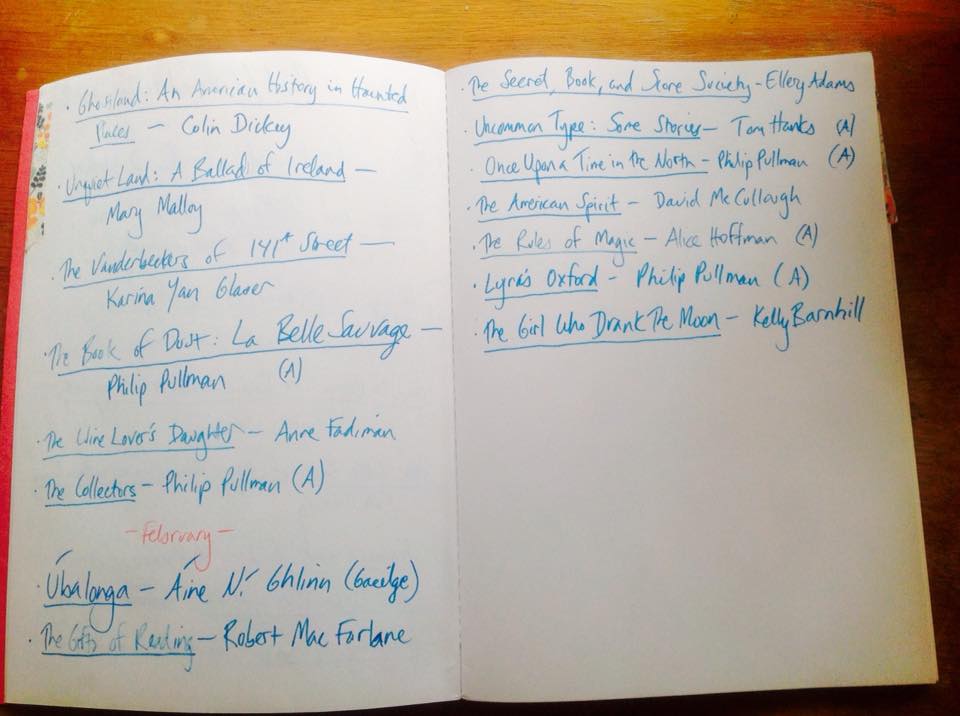 · Ghostland: An American History in Haunted
Places — Colin Dickey
· Unquiet Land: A Ballad of Ireland —
Mary Malloy
· The Vanderbeekers of 141st Street —
Karina Yan Glaser
· The Book of Dust: La Belle Sauvage —
Philip Pullman (A)
· The Wine Lover's Daughter — Anne Fadiman
· The Collectors — Philip Pullman (A)
- February -
· Úbalonga — Áine Ní Ghlinn (Gaeilge)
· The Gifts of Reading — Robert MacFarlane
· The Secret, Book, and Scone Society - Ellery Adams
· Uncommon Type: Some Stories — Tom Hanks (A)
· Once Upon a Time in the North - Philip Pullman (A)
· The American Spirit - David McCullough
· The Rules of Magic - Alice Hoffman (A)
· Lyra's Oxford - Philip Pullman (A)
· The Girl Who Drank The Moon - Kelly Barnhill